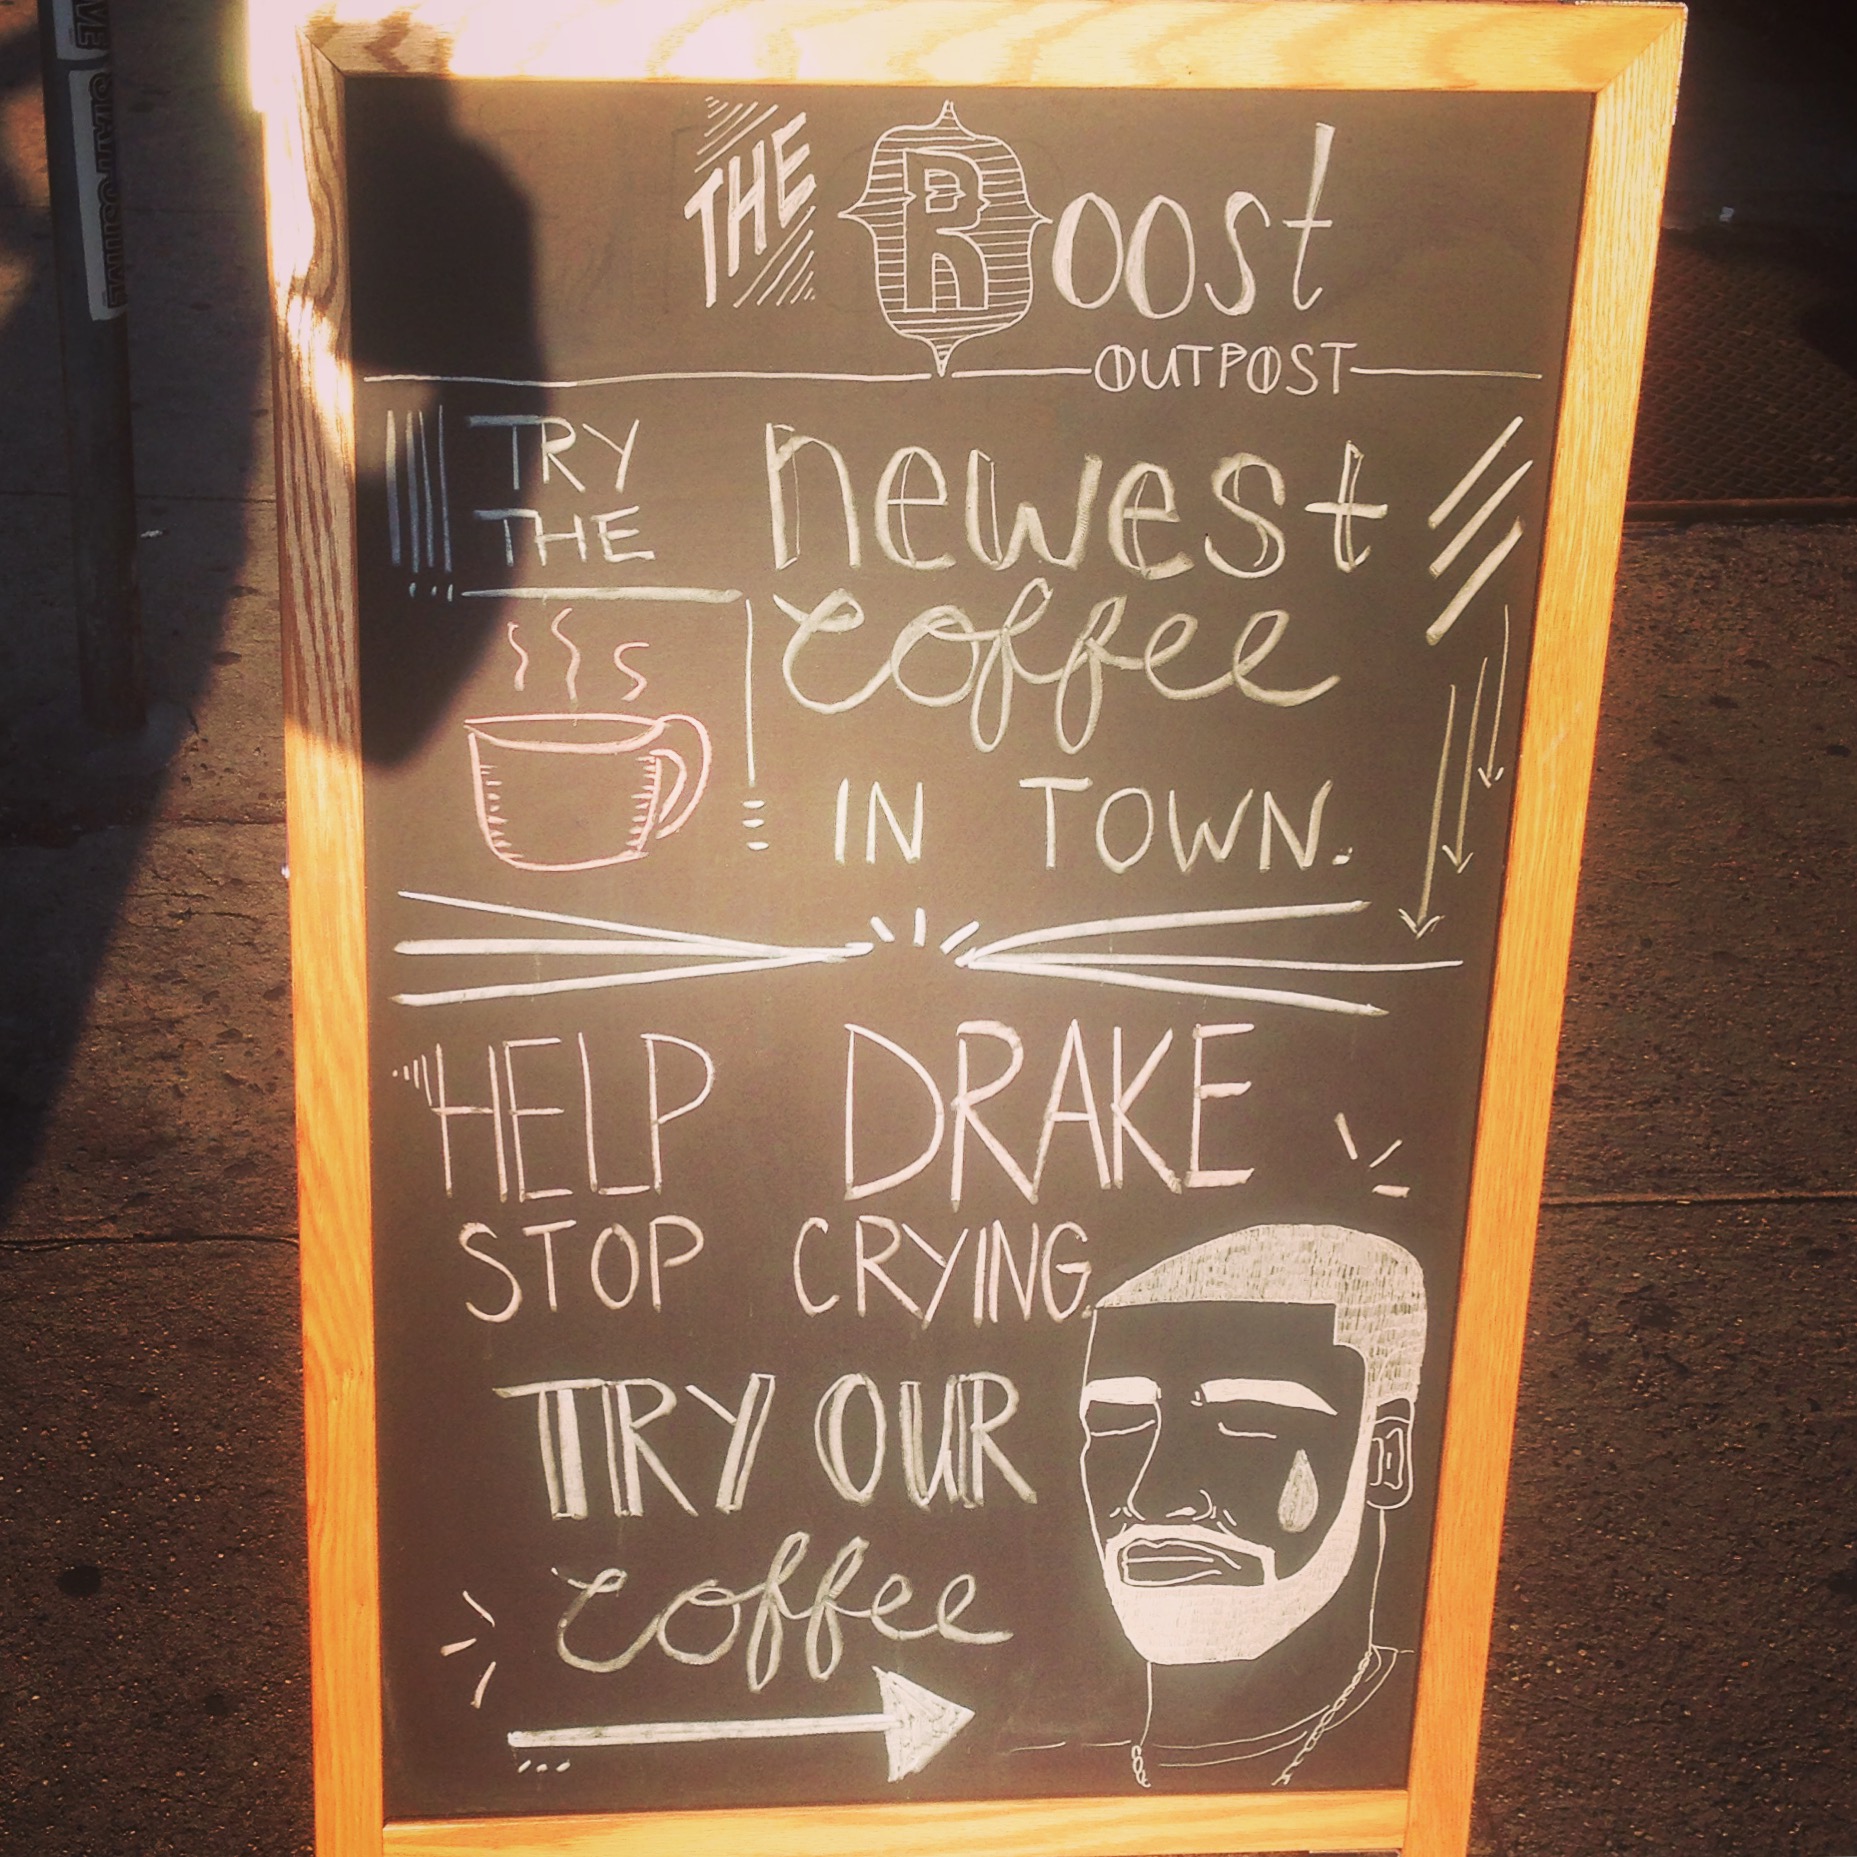 THE Roost
OUTPOST
TRY THE newest
coffee
IN TOWN.
HELP DRAKE
STOP CRYING.
TRY OUR
coffee